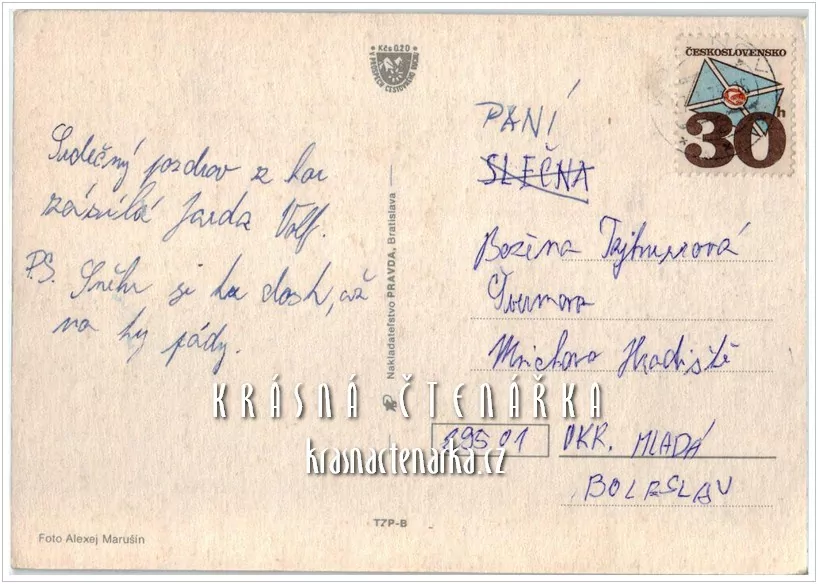 Kčs 0,20
V PROSPECH CESTOVNÉHO RUCHU
ČESKOSLOVENSKO
30 h
Srdečný pozdrav z hor
zásílá Jarda Volf.
P.S. Sněhu je tu dosti, až
na ty pády.
Nakladateľstvo PRAVDA, Bratislava
PANÍ
SLEČNA
Božena
Mnichovo Hradiště
29501 OKR. MLADÁ
BOLESLAV
KRÁSNÁ ČTENÁŘKA
krasnactenarka.cz
TZP-B
Foto Alexej Marušín